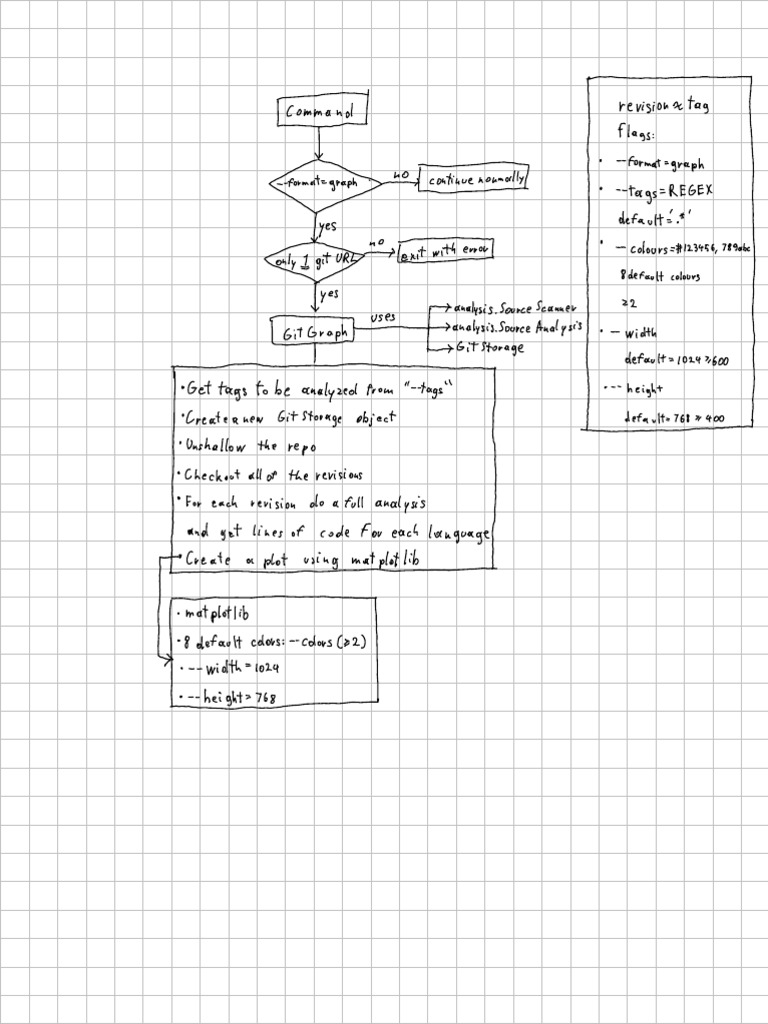 Command
--format=graph
no
continue normally
yes
only 1 git URL
no
exit with error
yes
GitGraph
uses
analysis.Source Scanner
analysis.Source Analysis
GitStorage
• Get tags to be analyzed from "--tags"
• Create a new GitStorage object
• Unshallow the repo
• Checkout all of the revisions
• For each revision do a full analysis
and get lines of code for each language
• Create a plot using matplotlib
• matplotlib
• 8 default colors: --colors (≥2)
• -- width = 1024
• -- height = 768
revision ≈ tag
flags:
• --format=graph
• --tags=REGEX
default='.*'
• — colours=#123456, 789abc
8 default colours
≥2
• — width
default=1024 ≥600
• -- height
default=768 ≥ 400